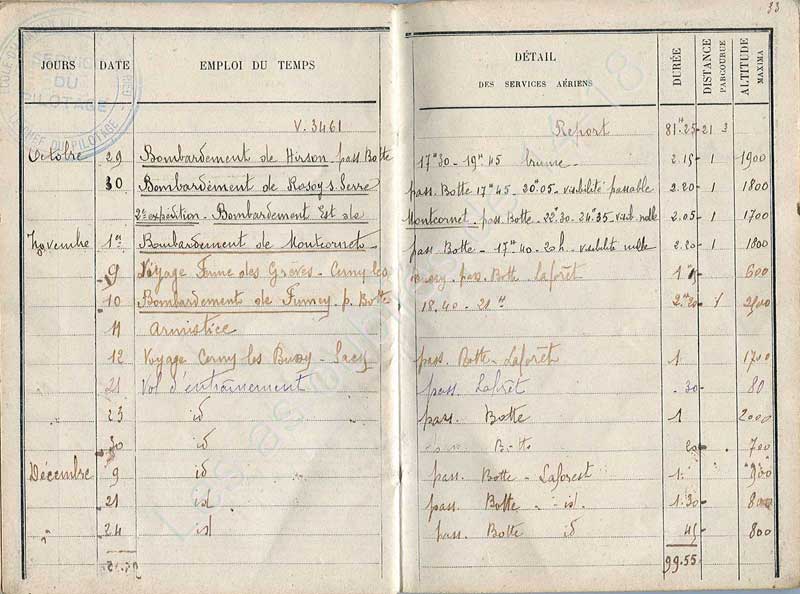 33
JOURS DATE EMPLOI DU TEMPS DÉTAIL DES SERVICES AÉRIENS DURÉE DISTANCE PARCOURUE ALTITUDE MAXIMA
SERVICE DU PILOTAGE
V. 3461 Report 81H.25 - 21 3
Octobre 29 Bombardement de Hirson. pass. Botte 17H30 - 19H45 brume - 2.15 - 1 1900
30 Bombardement de Rosoy s. Serre pass. Botte 17H45 - 20H05 - visibilité passable 2.20 - 1 1800
2e expédition - Bombardement Est de Montcornet - pass. Botte - 22H30 - 24H35 - visib. nulle 2.05 - 1 1700
Novembre 1er Bombardement de Montcornet - pass. Botte - 17H40 - 20h - visibilité nulle 2.20 - 1 1800
9 Voyage Ferme des Grèves - Cerny les pass. Botte Laforêt 600
10 Bombardement de Fumey p. Botte 18.40 - 21H 2H20 - 1
11 Armistice
12 Voyage Cerny les Bucy - Sacy pass. Botte - Laforêt 1 1700
21 Vol d'entraînement pass. Laforêt 30 - 80
23 id pass. Botte 1 2000
30 id Botte 20 - 700
Décembre 9 id pass. Botte - Laforest 1. 900
21 id pass. Botte - id. 1.30 -
24 id pass. Botte id 45 - 800
99.55
Les as oubliés de 14-18